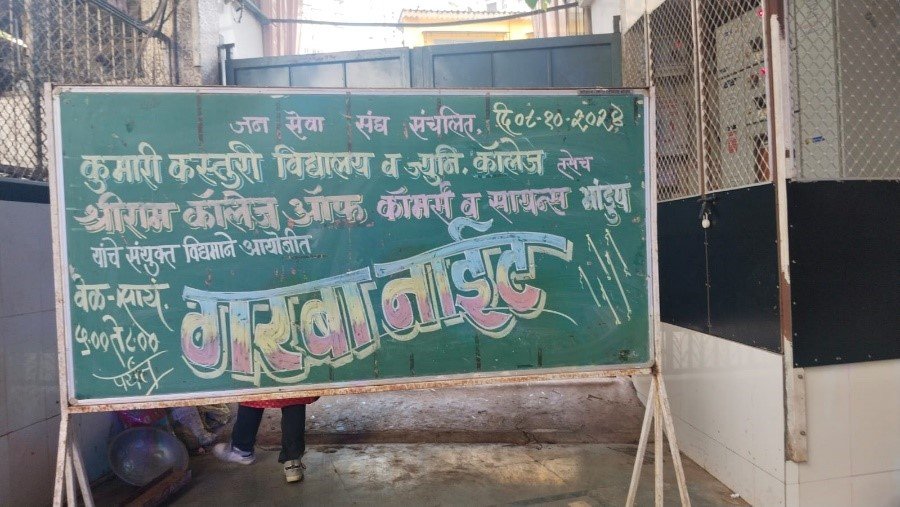 जन सेवा संघ संचलित. दि ०८-१०-२०२४
कुमारी कस्तुरी विद्यालय व ज्युनि. कॉलेज तसेच
श्रीराम कॉलेज ऑफ कॉमर्स व सायन्स भांडुप
यांचे संयुक्त विद्यमाने आयोजीत
वेळ-सायं.
५:०० ते ८:००
पर्यंत
गरबा नाईट